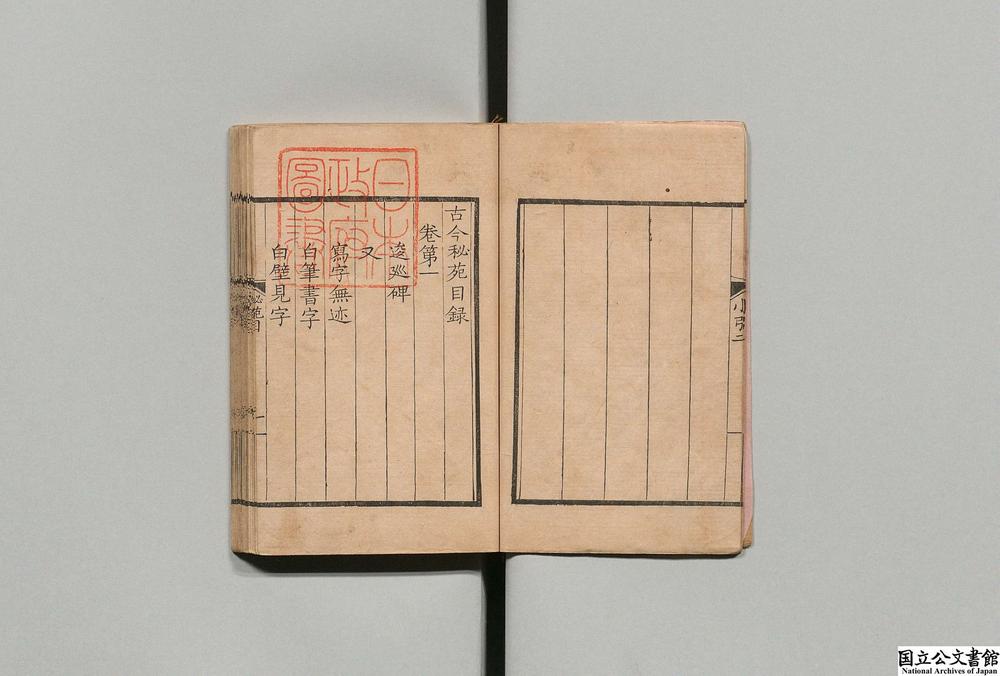 小引二
古今秘苑目録
卷第一
逡廵碑
又
寫字無迹
白筆書字
白壁見字
秘苑目
一
日本
政府
圖書
国立公文書館
National Archives of Japan